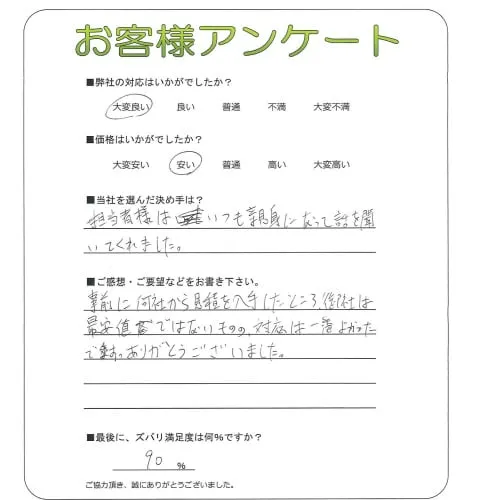 お客様アンケート
■弊社の対応はいかがでしたか？
大変良い 良い 普通 不満 大変不満
■価格はいかがでしたか？
大変安い 安い 普通 高い 大変高い
■当社を選んだ決め手は？
担当者様はいつも親身になって話を聞
いてくれました。
■ご感想・ご要望などをお書き下さい。
事前に何社から見積を入手したところ、御社は
最安値ではないものの、対応は一番よかった
です。ありがとうございました。
■最後に、ズバリ満足度は何%ですか？
90 %
ご協力頂き、誠にありがとうございました。